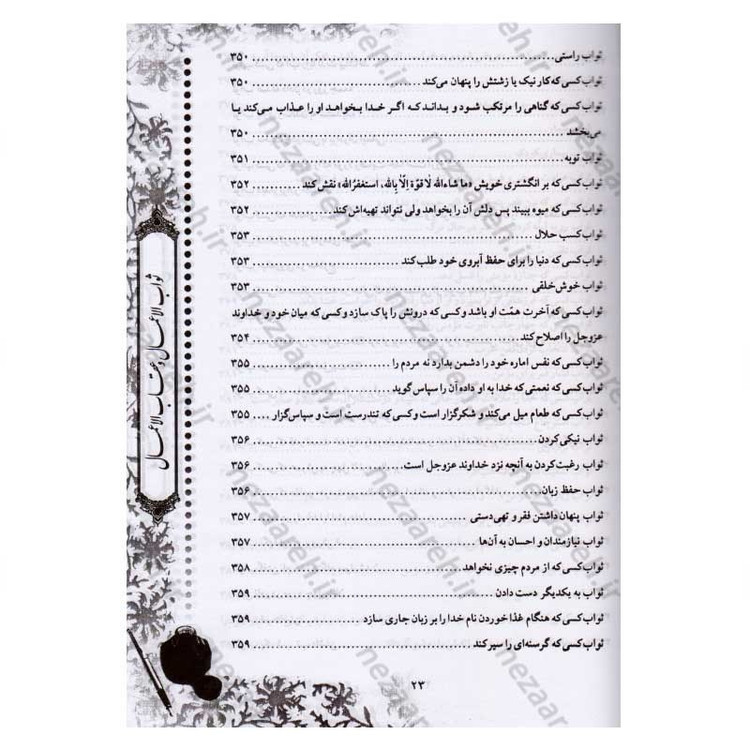 ثواب راستی ............ ۳۵۰
ثواب کسی که کار نیک یا زشتش را پنهان می‌کند ............ ۳۵۰
ثواب کسی که گناهی را مرتکب شود و بداند که اگر خدا بخواهد او را عذاب می‌کند یا
می‌بخشد ............ ۳۵۰
ثواب توبه ............ ۳۵۱
ثواب کسی که بر انگشتری خویش «ما شاءالله لَا قوّة اِلّا بِالله، استغفرُالله» نقش کند ............ ۳۵۲
ثواب کسی که میوه ببیند پس دلش آن را بخواهد ولی نتواند تهیه‌اش کند ............ ۳۵۲
ثواب کسب حلال ............ ۳۵۳
ثواب کسی که دنیا را برای حفظ آبروی خود طلب کند ............ ۳۵۳
ثواب خوش خلقی ............ ۳۵۳
ثواب کسی که آخرت همّت او باشد و کسی که درونش را پاک سازد و کسی که میان خود و خداوند
عزوجل را اصلاح کند ............ ۳۵۴
ثواب کسی که نفس اماره خود را دشمن بدارد نه مردم را ............ ۳۵۵
ثواب کسی که نعمتی که خدا به او داده آن را سپاس گوید ............ ۳۵۵
ثواب کسی که طعام میل می‌کند و شکرگزار است و کسی که تندرست است و سپاس‌گزار .... ۳۵۵
ثواب نیکی کردن ............ ۳۵۶
ثواب رغبت کردن به آنچه نزد خداوند عزوجل است ............ ۳۵۶
ثواب حفظ زبان ............ ۳۵۶
ثواب پنهان داشتن فقر و تهی‌دستی ............ ۳۵۷
ثواب نیازمندان و احسان به آن‌ها ............ ۳۵۷
ثواب کسی که از مردم چیزی نخواهد ............ ۳۵۸
ثواب به یکدیگر دست دادن ............ ۳۵۹
ثواب کسی که هنگام غذا خوردن نام خدا را بر زبان جاری سازد ............ ۳۵۹
ثواب کسی که گرسنه‌ای را سیر کند ............ ۳۵۹
۲۳
ثواب الاعمال و عقاب الاعمال
nezaareh.ir